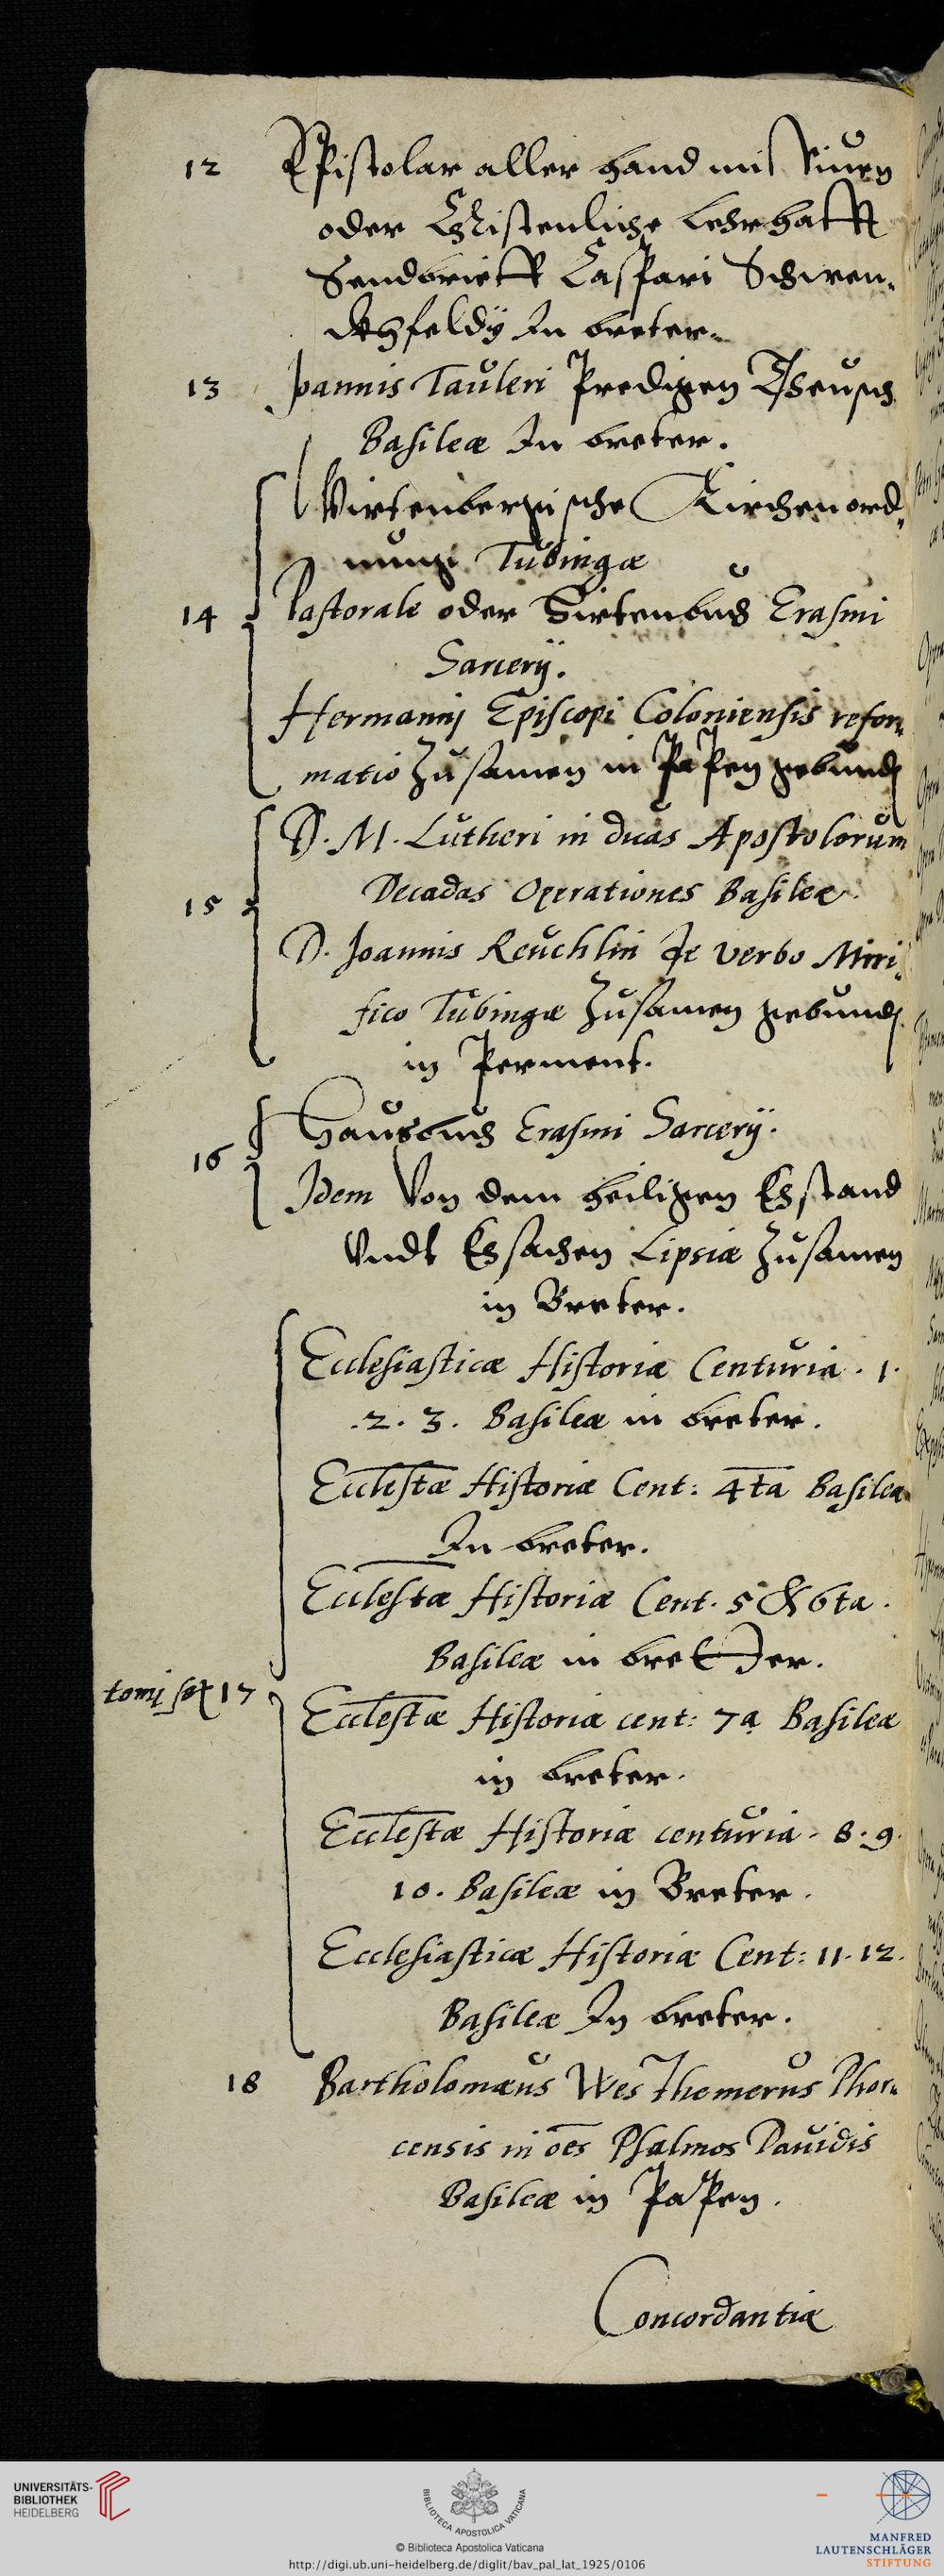 12 Epistolar aller hand
oder Christenliche Lehrhafft
Sendbrieff Casspari Schwen-
ckhfeldÿ In breter.
13 Joannis Tauleri Predigen Theusch
Basileæ In breter.
Wirtenbergische Kirchenord-
nung Tubingæ
14 Pastorale oder Hirtenbuch Erasmi
Sarcerÿ.
Hermannj Episcopi Coloniensis refor-
matio Zusamen in Pappen gebunden
D. M. Lutheri in duas Apostolorum
15 Decadas Operationes Basileæ.
D. Joannis Reuchlin de verbo Miri-
fico Tubingæ Zusamen gebunden
in Perment.
16 Hausbuch Erasmi Sarcerÿ.
Idem Von dem heiligen Ehstand
Vndt Ehsachen Lipsiæ Zusamen
in Breter.
Ecclesiasticæ Historiæ Centuria . 1.
. 2. 3. Basileæ in breter.
Ecclestæ Historiæ Cent: 4ta Basileæ
In breter.
Ecclestæ Historiæ Cent. 5 & 6ta.
Basileæ in breter.
tomj sex 17 Ecclestæ Historiæ cent: 7a Basileæ
in breter.
Ecclestæ Historiæ centuria . 8. 9.
10. Basileæ in Breter.
Ecclesiasticæ Historiæ Cent: 11. 12.
Basileæ In breter.
18 Bartholomæus Westhemerus Phor-
censis in oēs Psalmos Dauidis
Basileæ in Pappen.
Concordantiæ
UNIVERSITÄTS-
BIBLIOTHEK
HEIDELBERG
BIBLIOTECA APOSTOLICA VATICANA
© Biblioteca Apostolica Vaticana
http://digi.ub.uni-heidelberg.de/diglit/bav_pal_lat_1925/0106
MANFRED
LAUTENSCHLÄGER
STIFTUNG